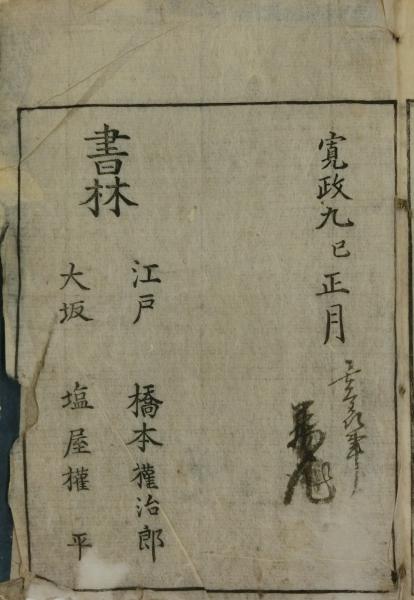 寛政九巳正月
江戸 橋本權治郎
大坂 塩屋權平
書林